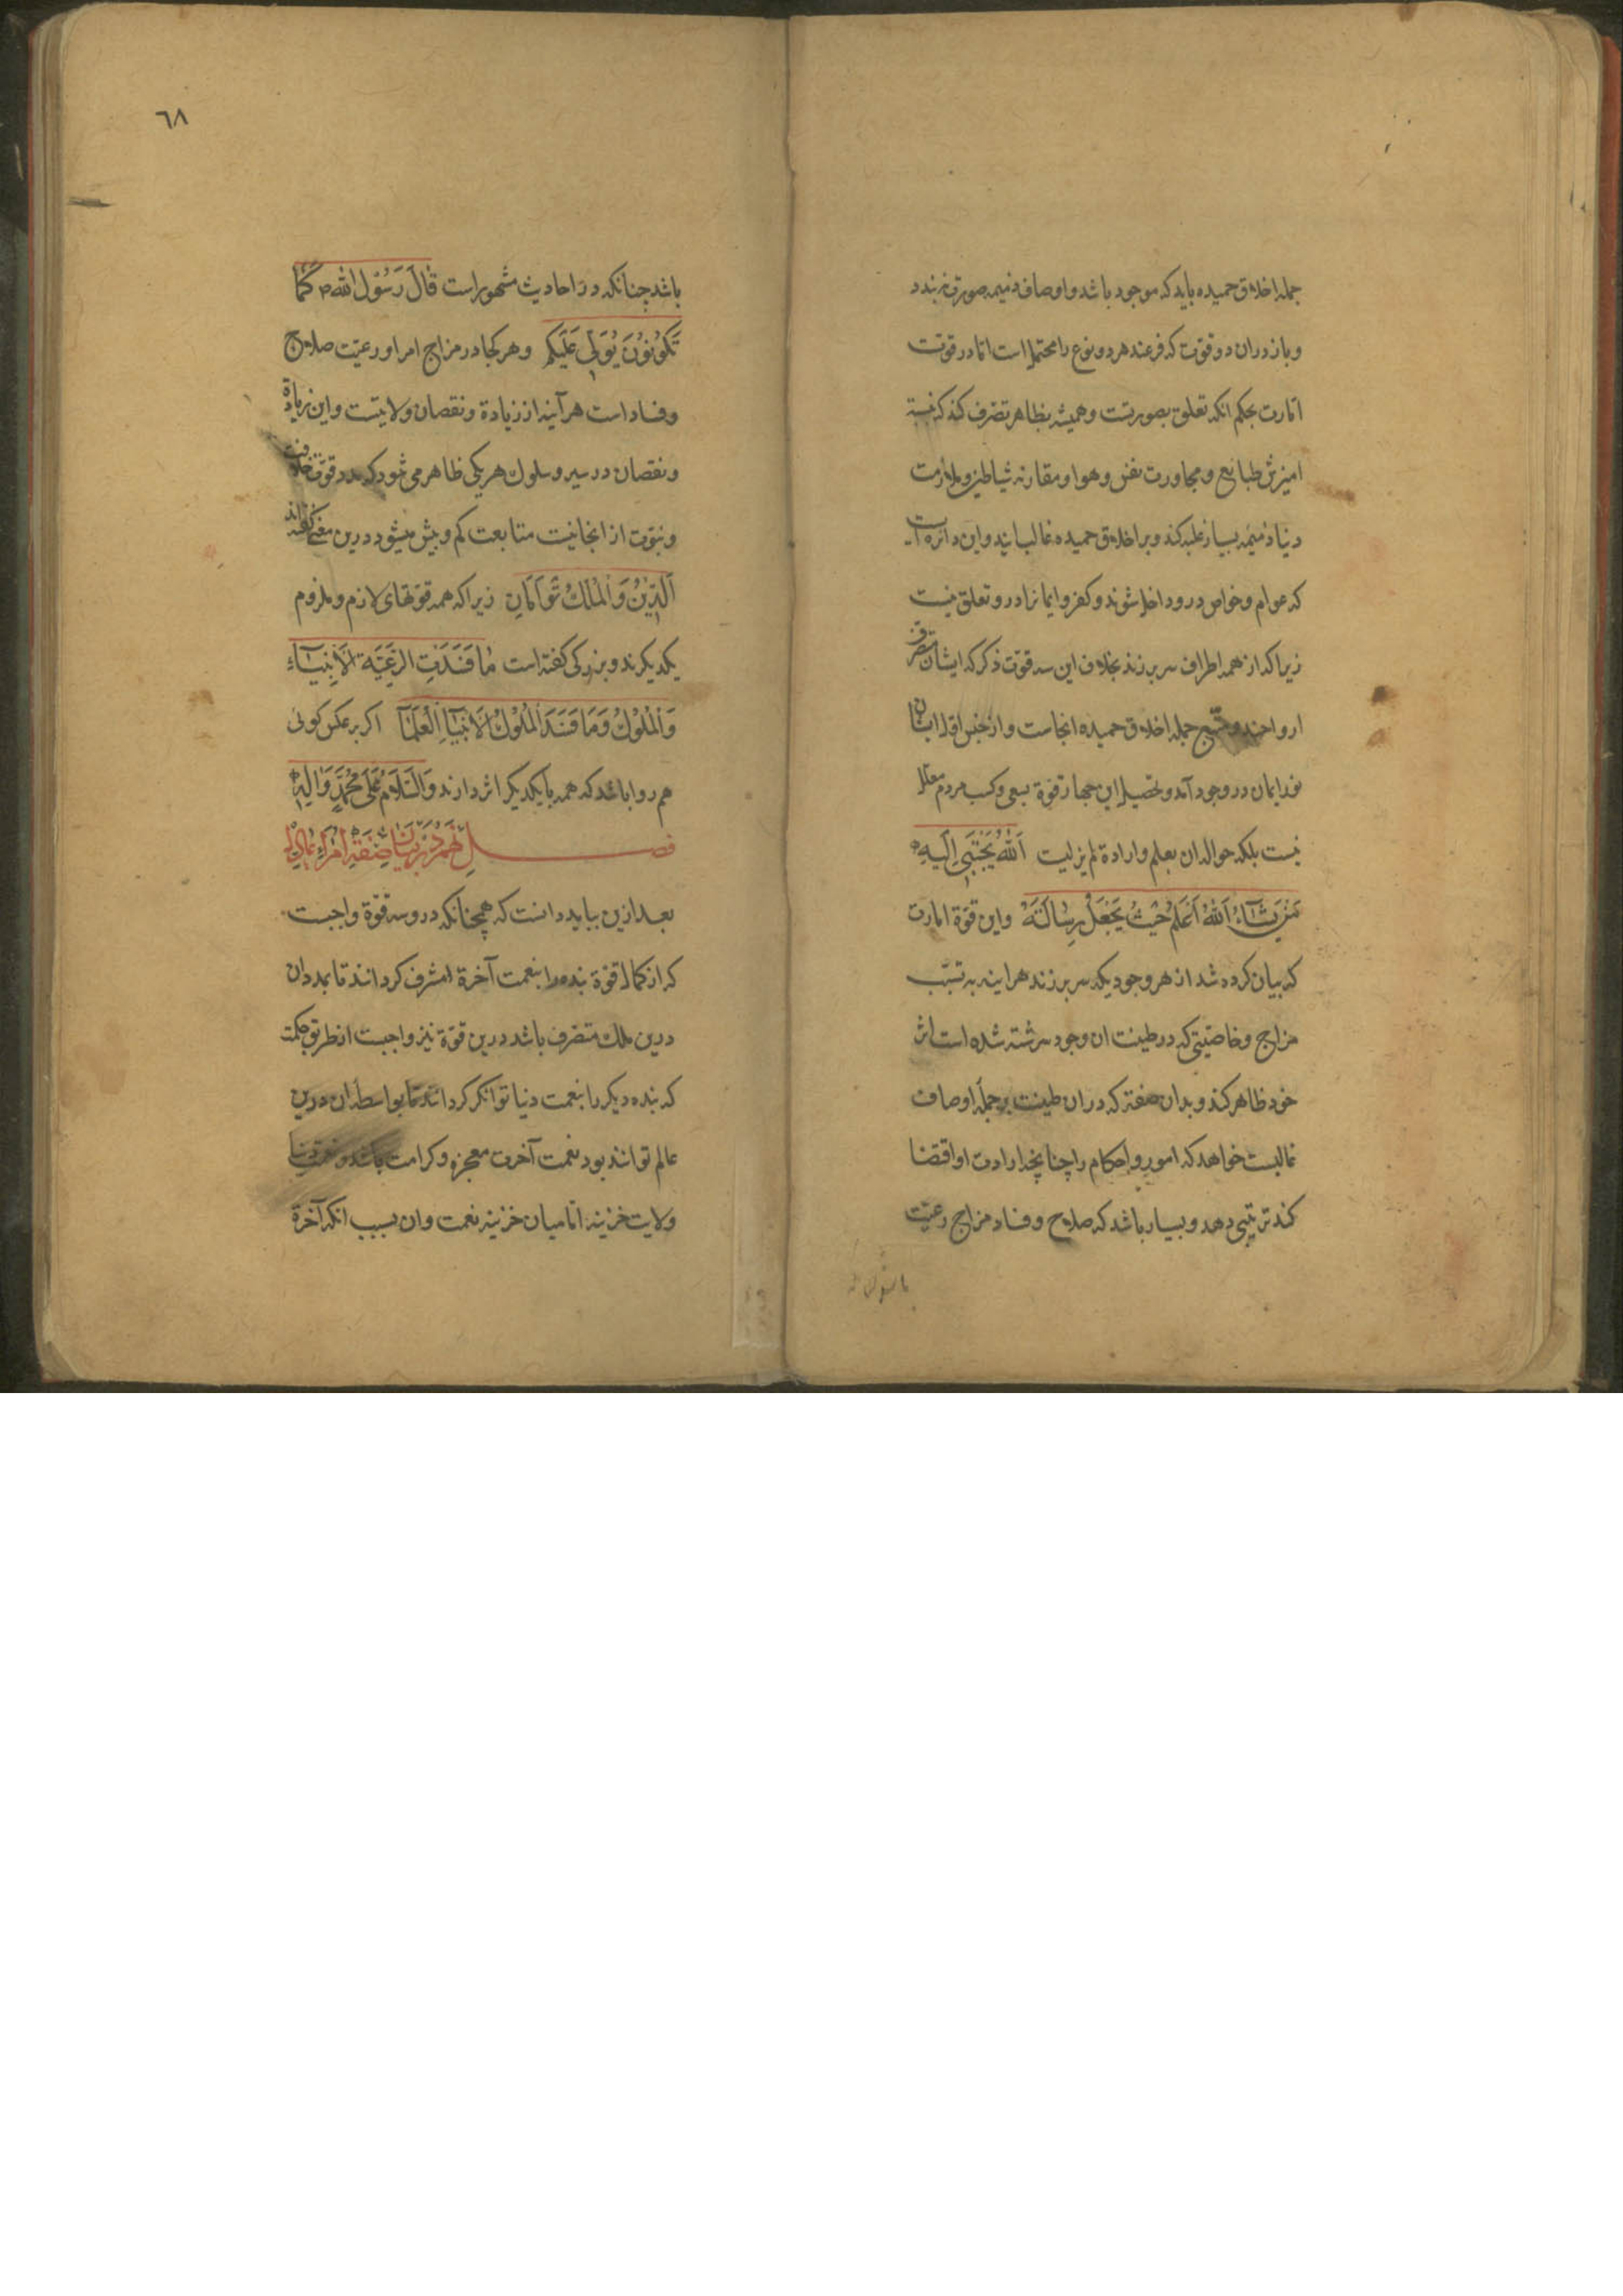 جمله اخلاق حمیده باید که موجود باشد و اوصاف ذمیمه صورت نه بندد
و باز دران دو قوّت که فرعند هر دو نوع را محتمل است اما در قوّت
امارت بحکم انکه تعلق بصورتست و همیشه بظاهر تصرّف کند که نسبة
امیزش طبایع و مجاورت نفس و هوا و مقارنه شیاطین و ملازمت
دنیا ذمیمه بسیار غلبه کند و بر اخلاق حمیده غالب ایند و این دائره ایست
که عوام و خواص درو داخل شوند و کفر و ایمانرا درو تعلق نیست
زیرا که از همه اطراف سر بر زند بخلاف این سه قوّت ذکر که ایشان تصرف
ارواحند و جمله اخلاق حمیده انجاست و از جنس اول ایشان
نور ایمان در وجود آمد و تحصیل این چهار قوة بسعی و کسب مردم معلل
نیست بلکه حوالهٔ ان بعلم و ارادة لم یزلیت اَللّٰهُ یَجْتَبِی اِلَیْهِ
مَنْ یَشَآءُ اَللّٰهُ اَعْلَمُ حَیْثُ یَجْعَلُ رِسَالَتَهُ و این قوّة امارت
که بیان کرده شد از هر وجودیکه سر بر زند هراینه به تسبّب
مزاج و خاصّیتی که در طینت ان وجود سرشته شده است اثر
خود ظاهر کند و بدان صفة که دران طینت بر جملهٔ اوصاف
غالبست خواهد که امور و احکام را چنانچه ارادت او اقتضا
کند ترتیبی دهد و بسیار باشد که صلاح و فساد مزاج رعیّت
٦٨
باشد چنانکه در احادیث مشهور است قَالَ رَسُوْلُ اللّٰه ص کَمَا
تَکُوْنُوْنَ یُوَلّٰی عَلَیْکُمْ و هر کجا در مزاج امرا و رعیّت صلاح
و فساد است هر آینه از زیادة و نقصان ولایتست و این زیادة
و نقصان در سیر و سلوک هر یکی ظاهر می شود که مدد قوّت خلافت
و نبوّت از انجانیت متابعت کم و بیش میشود درین معنی گفته اند
اَلدِّیْنُ وَالْمُلْکُ تَوْاَمَانِ زیرا که همه قوّتهای لازم و ملزوم
یکدیکرند و بزرکی کفته است مَا فَسَدَتِ الرَّعِیَّة اِلَّا بِفَسَادِ
وَالْمُلُوْكُ وَمَا فَسَدَ الْمُلُوْكُ اِلَّا الْعُلَمَآ اکر بر عکس کوئی
هم روا باشد که همه با یکدیکر اثر دارند وَالسَّلَامُ عَلٰی مُحَمَّدٍ وَاٰلِهٖ
فصل نهم در بیان
بعد ازین بباید دانست که همچنانکه درو سه قوّة واجبست
که از کمال قوّة بنده را بنعمت آخرة مشرف کردانند تا بمدد ان
درین ملک متصّرف باشد درین قوّة نیز واجبست از طریق حکمت
که بنده دیکر را بنعمت دنیا توانکر کردانند تا بواسطهٔ ان درین
عالم توانند بود نعمت آخرت معجزه و کرامت باشد و نعمت دنیا
ولایت خزینه اما میان خزینه نعمت و ان بسبب انکه آخرة